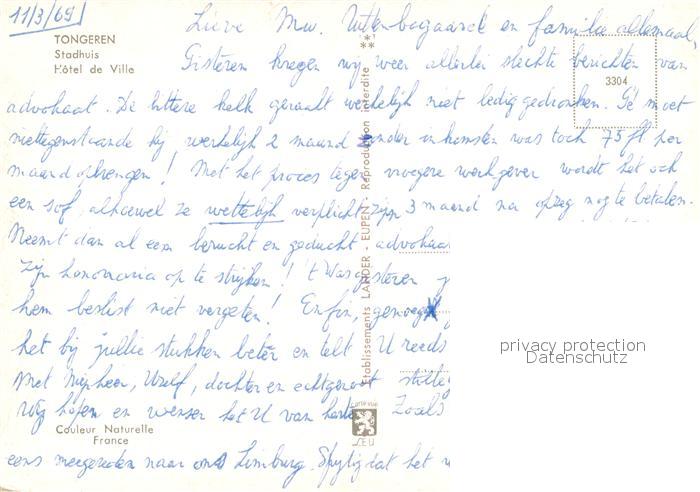 11/3/69
TONGEREN
Stadhuis
Hôtel de Ville
3304
Lieve Mw. en familie allemaal,
Gisteren kregen wij weer allerlei slechte berichten van
advokaat. De bittere kelk geraakt werkelijk niet lediggedronken. Gé moet
niettegenstaande hij werkelijk 2 maand zonder inkomsten was toch 75 fl per
maand opbrengen! Met het proces tegen vroegere werkgever wordt het ook
een sof, alhoewel ze wettelijk verplicht zijn 3 maand na opzeg nog te betalen.
Neemt dan al een berucht en geducht advokaat
zijn honoraria op te strijken! 't Was gisteren
hem beslist niet vergeten! Enfin, genoeg
het bij jullie stukken beter en telt U reeds
Met Mijnheer, Uzelf, dochter en echtgenoot
Wij hopen en wensen het U van harte Zoals
eens meegereden naar ons Limburg. Spijtig dat het
Etablissements LANDER - EUPEN - Reproduction interdite
carte vue
Couleur Naturelle
France
privacy protection
Datenschutz